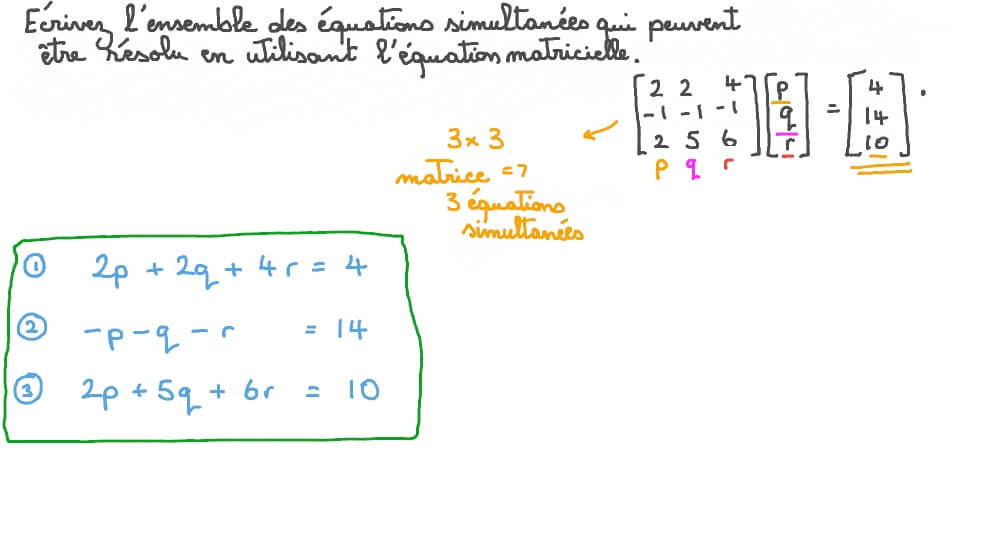 Ecrivez l'ensemble des équations simultanées qui peuvent
être résolu en utilisant l'équation matricielle.
[2 2 4] [p] = [4]
[-1 -1 -1] [q] [14]
[2 5 6] [r] [10] .
p q r
3 x 3
matrice =7
3 équations
simultanées
① 2p + 2q + 4r = 4
② -p - q - r = 14
③ 2p + 5q + 6r = 10